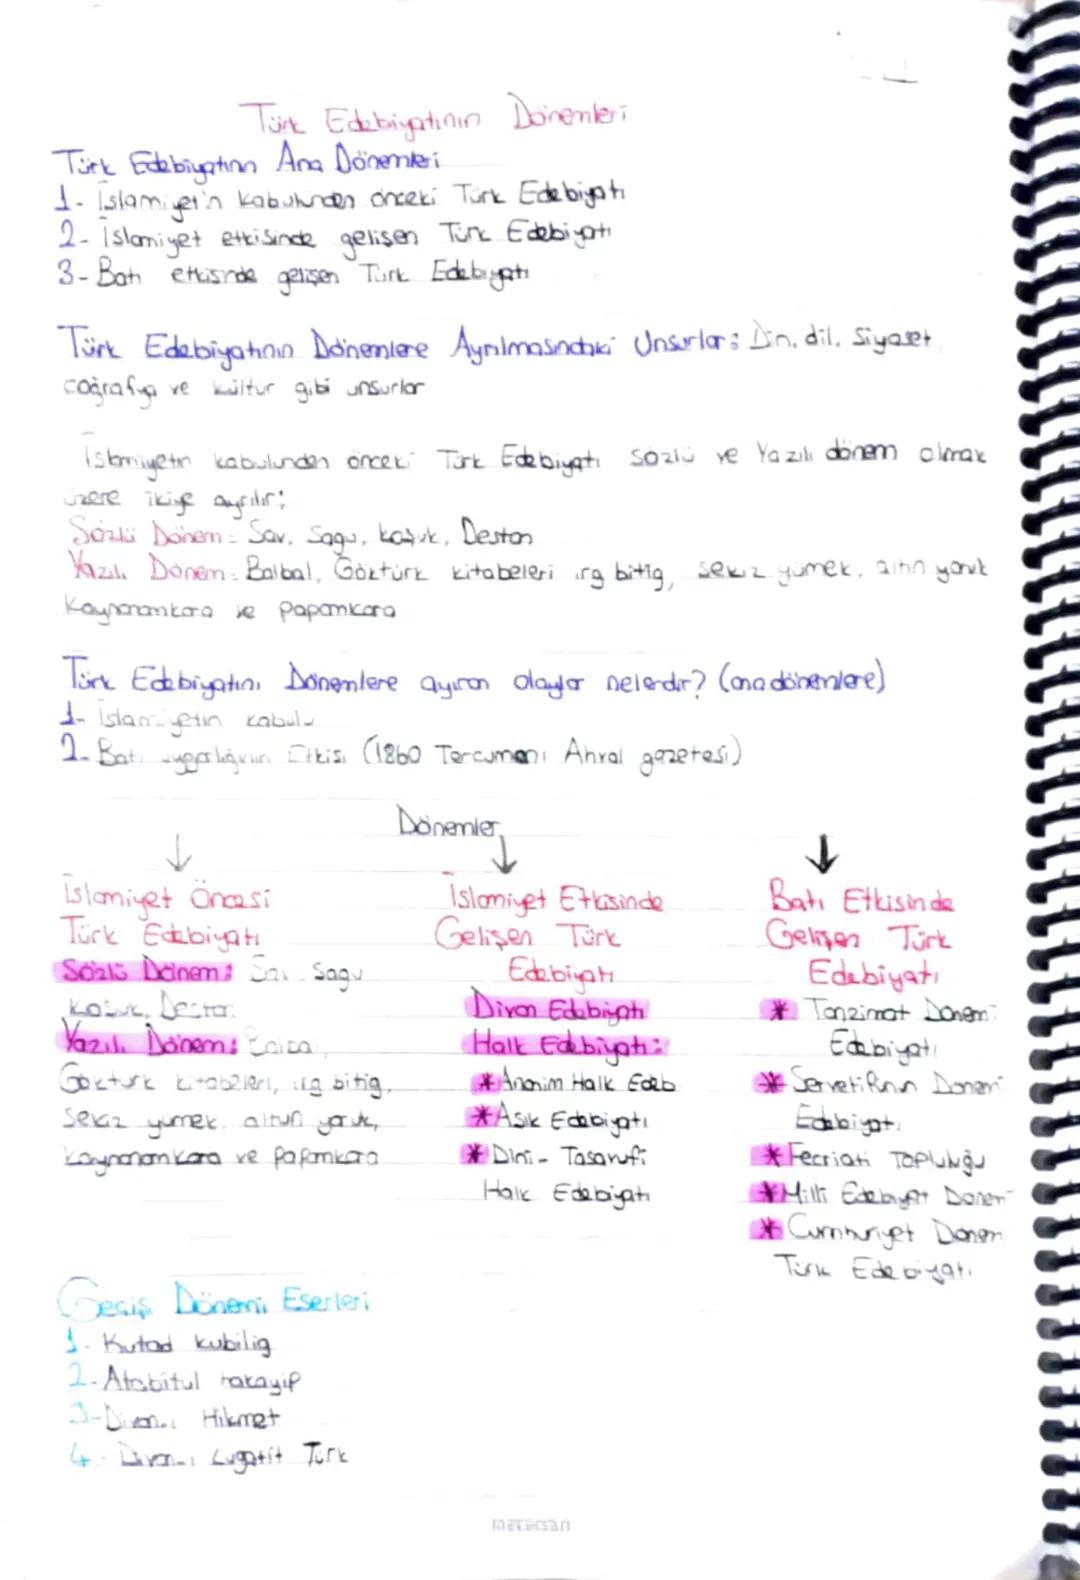 Türk Edebiyatının Dönemleri
Türk Edebiyatının Ana Dönemleri
1- İslamiyet'in kabulunden önceki Türk Edebiyatı
2- İslamiyet etkisinde gelişen Türk Edebiyatı
3- Batı etkisinde gelişen Türk Edebiyatı
Türk Edebiyatının Dönemlere Ayrılmasındaki Unsurlar: Din, dil, Siyaset,
coğrafya ve kültur gibi unsurlar
İslamiyetin kabulunden önceki Türk Edebiyatı sözlü ve Yazılı dönem olmak
üzere ikiye ayrılır:
Sözlü Dönem: Sav, Sagu, koşuk, Destan
Yazılı Dönem: Balbal, Göktürk kitabeleri ırg bitig, sekiz yümek, altın yaruk
Kaynanamkara ve papamkara
Türk Edebiyatını Dönemlere ayıran olaylar nelerdir? (ana dönemlere)
1- İslamiyetin kabulu
2- Batı uygarlığının Etkisi (1860 Tercumanı Ahval gazetesi)
Dönemler
İslamiyet Öncesi
Türk Edebiyatı
Sözlü Dönem: Sav Sagu
Koşuk, Destan
Yazılı Dönem: Balbal
Göktürk kitabeleri, ırg bitig,
Sekiz yumek, altun yaruk,
kaynanamkara ve papamkara
İslamiyet Etkisinde
Gelişen Türk
Edebiyatı
Divan Edebiyatı
Halk Edebiyatı:
* Anonim Halk Edeb
* Aşık Edebiyatı
* Dini - Tasavufi
Halk Edebiyatı
Batı Etkisinde
Gelişen Türk
Edebiyatı
* Tanzimat Dönemi
Edebiyatı
* Servetifunun Dönemi
Edebiyatı
* Fecriati Topluluğu
* Milli Edebiyat Dönemi
* Cumhuriyet Dönemi
Türk Edebiyatı
Geçiş Dönemi Eserleri
1- Kutad kubilig
2- Atabitul hakayıp
3- Divan-ı Hikmet
4- Divan-ı Lugatit Türk